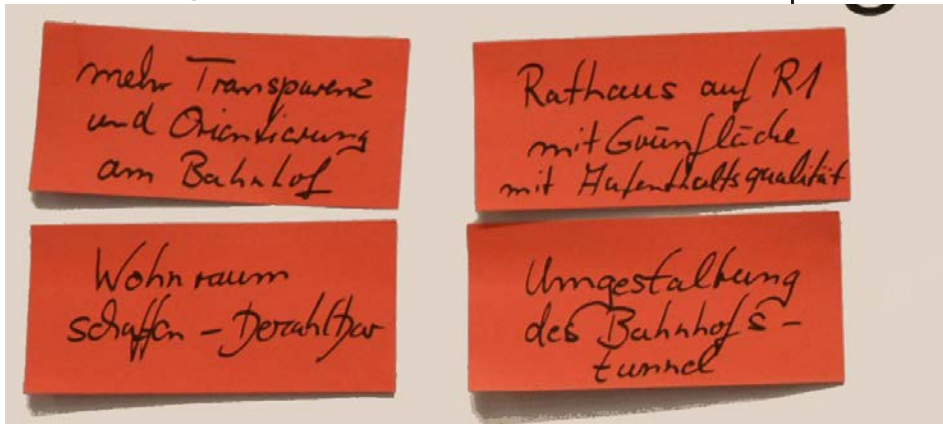 mehr Transparenz
und Orientierung
am Bahnhof
Rathaus auf R1
mit Grünfläche
mit Aufenthaltsqualität
Wohnraum
schaffen - Bezahlbar
Umgestaltung
des Bahnhofs-
tunnel